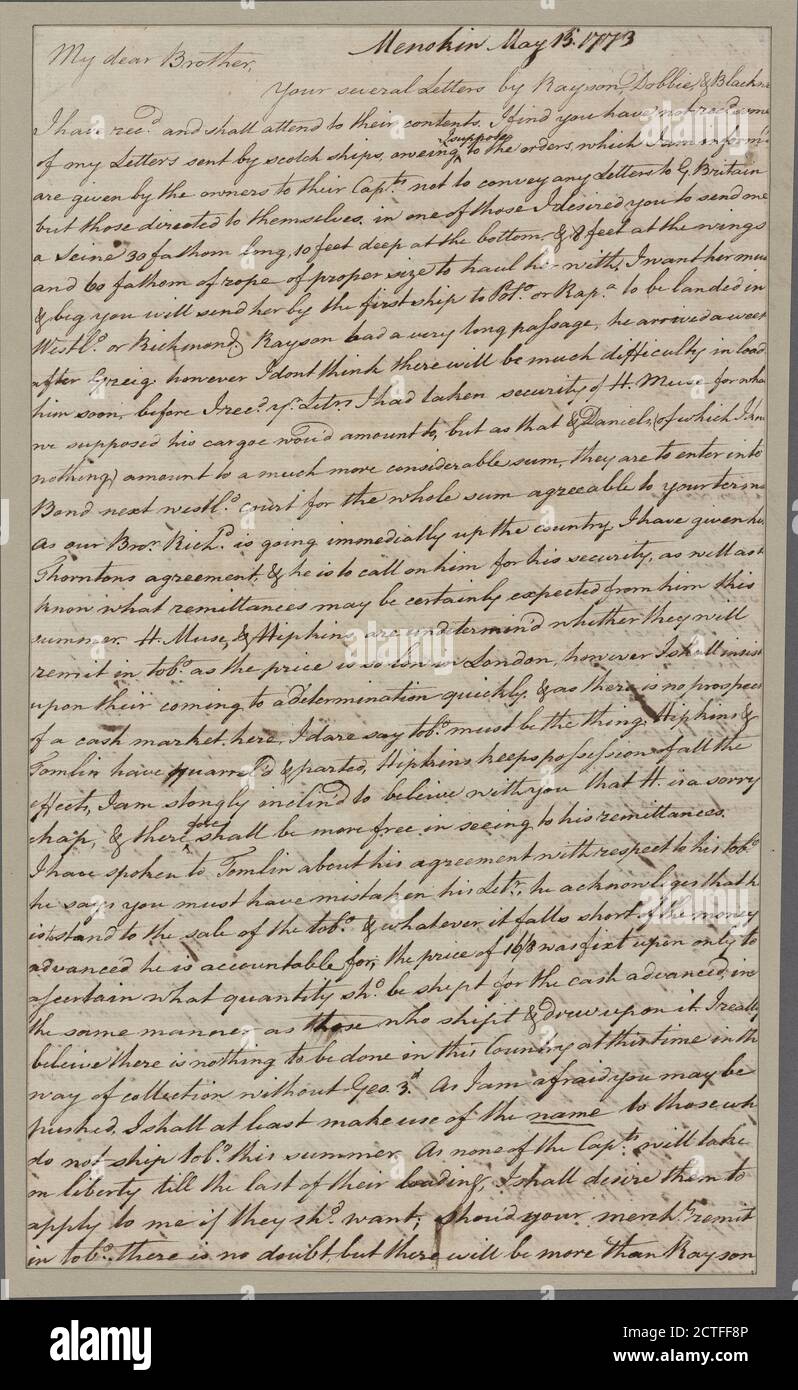 Menokin May 15. 1773
My dear Brother,
Your several Letters by Rayson, Dobbie, & Black
I have recd. and shall attend to their contents. I find you have not recd. some
of my Letters sent by scotch ships, oweing I suppose to the orders, which I am inform'd
are given by the owners to their Capts. not to convey any Letters to G. Britain
but those directed to themselves. in one of those I desired you to send me
a Seine 30 fathom long, 10 feet deep at the bottom, & 8 feet at the wings
and 60 fathom of rope of proper size to haul her with, I want her much
& beg you will send her by the first ship to Poto. or Rapa. to be landed in
Westld. or Richmond. Rayson had a very long passage, he arrived a week
after Greig. however I dont think there will be much difficulty in load
him soon, before I recd. yr. Letrs. I had taken security of H. Muse for wha
we supposed his cargoe wou'd amount to, but as that & Daniels, (of which I kn
nothing) amount to a much more considerable sum, they are to enter into
Bond next westld. court for the whole sum agreeable to your terms
As our Bror. Richd. is going immedially up the country, I have given him
Thorntons agreement, & he is to call on him for his security, as well as t
know what remittances may be certainly expected from him this
summer. H. Muse, & Hipkins are undetermin'd whether they will
remit in tobo. as the price is so low in London, however I shall insist
upon their coming to a determination quickly. & as there is no prospect
of a cash market here, I dare say tobo. must be the thing. Hipkins &
Tomlin have quarrel'd & parted, Hipkins keeps possession of all the
effects, I am stongly inclin'd to beleive with you that H. is a sorry
chap, & therefore shall be more free in seeing to his remittances.
I have spoken to Tomlin about his agreement with respect to his tobo.
he says you must have mistaken his Letr. he acknowliges that he
is to stand to the sale of the tobo. & whatever it falls short of the money
advanced he is accountable for, the price of 16/8 was fixt upon only to
ascertain what quantity shd. be shipt for the cash advanced, in
the same manner as those who shipt & drew upon it. I really
beleive there is nothing to be done in this Country at this time in th
way of collection without Geo. 3d. As I am afraid you may be
pushed, I shall at least make use of the name to those wh
do not ship tobo. this summer. As none of the Capts. will take
on liberty till the last of their loading, I shall desire them to
apply to me if they shd. want, Shou'd your mercht. remit
in tobo. there is no doubt, but there will be more than Rayson
alamy
alamy
alamy
alamy
Image ID: 2CTFF8P
www.alamy.com